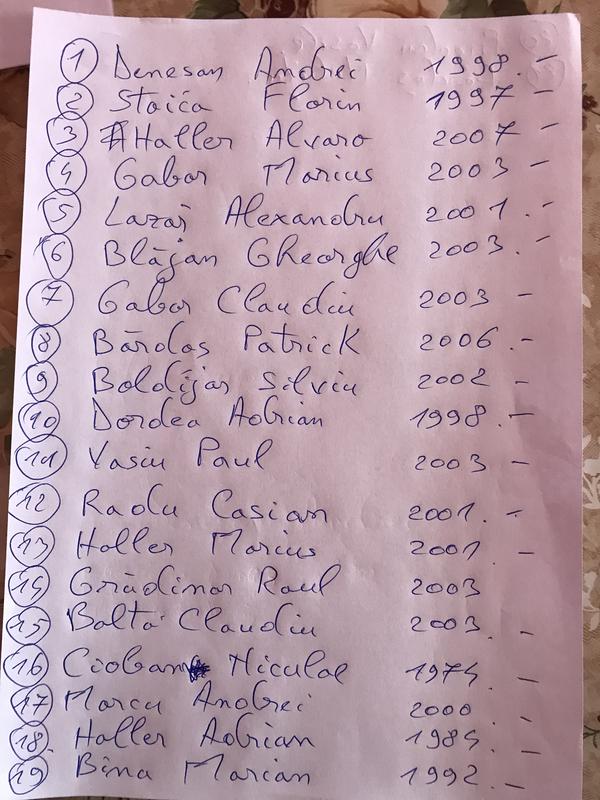 1 Denesan Andrei 1998.-
2 Stoica Florin 1997-
3 Haller Alvaro 2007-
4 Gabor Marius 2003-
5 Lazar Alexandru 2001.-
6 Blăjan Gheorghe 2003.-
7 Gabor Claudiu 2003-
8 Bărdas Patrick 2006.-
9 Boldijar Silviu 2002-
10 Dordea Adrian 1998.-
11 Vasiu Paul 2003-
12 Radu Casian 2001.-
13 Haller Marius 2001.-
14 Grădinar Raul 2003
15 Balta Claudiu 2003.-
16 Cioban Niculae 1974.-
17 Marcu Andrei 2000.-
18. Haller Adrian 1984.-
19 Bina Marian 1992.-